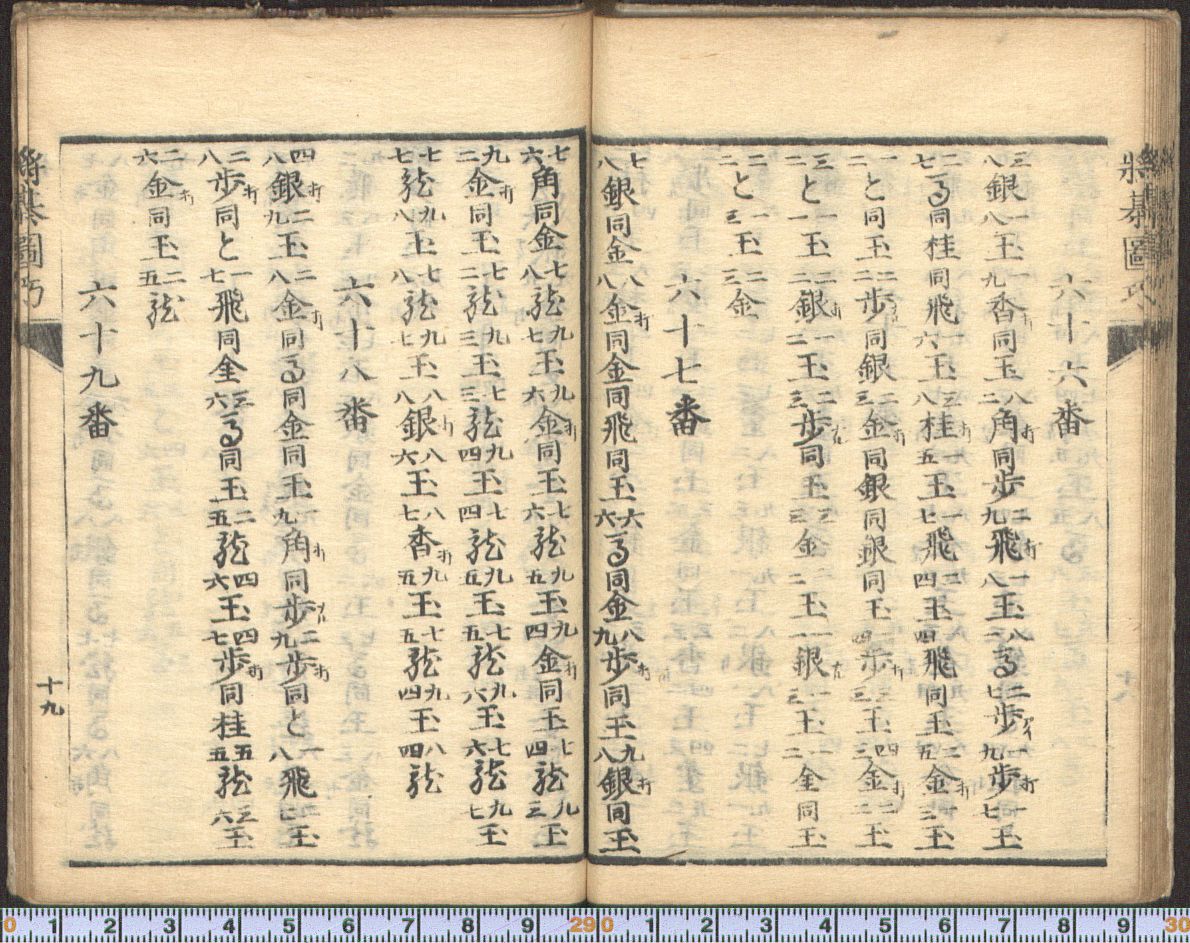 将棊圖巧
六十六番
三八銀一八玉一九香打同玉八二角同歩二九飛打一八玉八二馬二七歩ナル一九歩打一七玉
二七馬同桂同飛一六玉三八桂打一五玉一七飛二四玉一四飛同玉二五金打一三玉
一二と同玉二二歩ナル同銀二三金打同銀同銀同玉二四歩打三二玉四三金打二二玉
三二と一一玉二二銀打一二玉二三歩ナル同玉三三金一二玉一一銀ナル一三玉一二金同玉
二二と一三玉二三金
六十七番
七八銀同金八八金打同金同金同飛同玉六六馬同金八九歩打同玉九八銀打同玉
七六角同金七八龍九七玉九六金打同玉七六龍九五玉九四金打同玉七四龍九三玉
九二金打同玉七二龍九三玉七三龍九四玉七四龍九五玉七五龍九六玉七六龍九七玉
七七龍九八玉七八龍九七玉八八銀打八六玉八七香打九五玉七五龍九四玉八四龍
六十八番
四八銀打二九玉二八金打同馬同金同玉一九角打同歩ナル二九歩打同と一八飛二七玉
二八歩打同と一七飛同全三六馬同玉二五龍四六玉四七歩打同桂五五龍三六玉
二六金打同玉二五龍
六十九番
將棊圖巧
十九